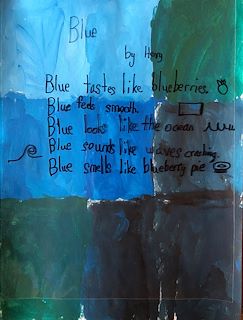 Blue
by Henry
Blue tastes like blueberries.
Blue feels smooth.
Blue looks like the ocean
Blue sounds like waves crashing.
Blue smells like blueberry pie